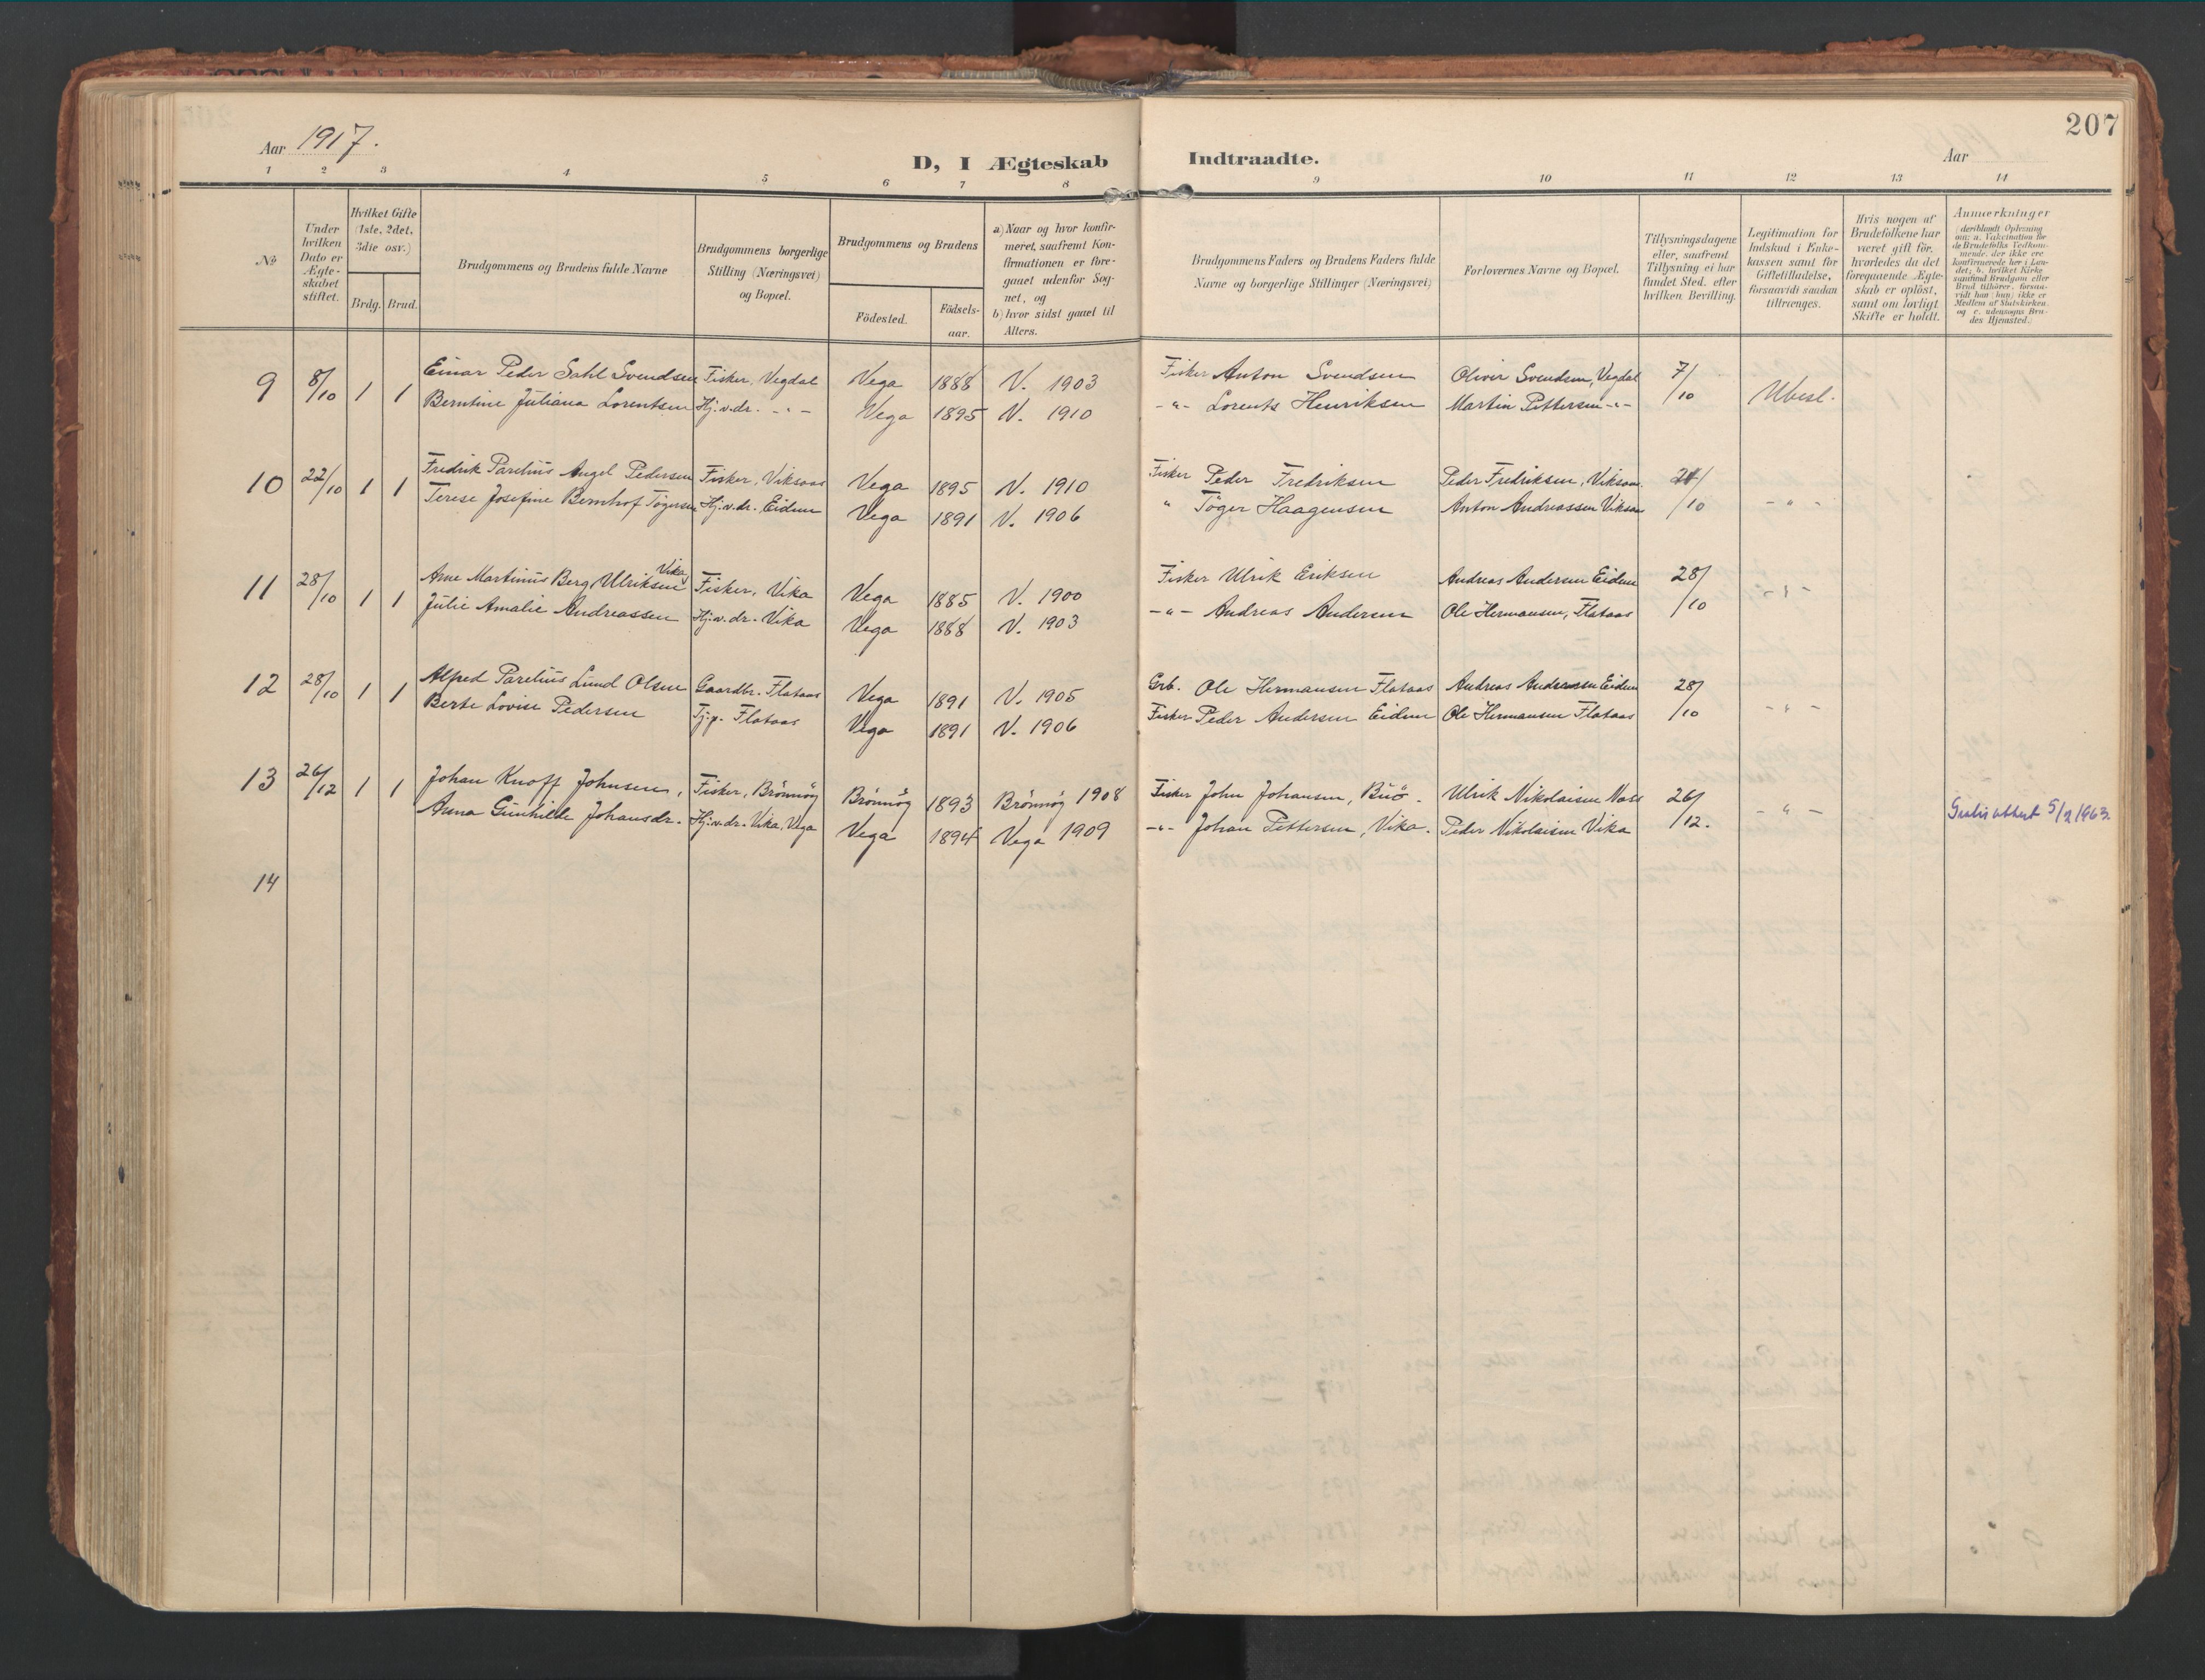 207
Aar 1917.
D, I Ægteskab Indtraadte.
Aar
1 2 3 4 5 6 7 8 9 10 11 12 13 14
№
Under hvilken Dato er Ægte-skabet stiftet.
Hvilket Gifte (1ste, 2det, 3die osv.)
Brdg. Brud.
Brudgommens og Brudens fulde Navne
Brudgommens borgerlige Stilling (Næringsvei) og Bopæl.
Brudgommens og Brudens
Födested. Födsels-aar.
a) Naar og hvor konfir-meret, saafremt Kon-firmationen er fore-gaaet udenfor Sog-net, og
b) hvor sidst gaaet til Alters.
Brudgommens Faders og Brudens Faders fulde Navne og borgerlige Stillinger (Næringsvei)
Forlovernes Navne og Bopæl.
Tillysningsdagene eller, saafremt Tillysning ei har fundet Sted, efter hvilken Bevilling.
Legitimation for Indskud i Enke-kassen samt for Giftetilladelse, forsaavidt saadan tiltrænges.
Hvis nogen af Brudefolkene har været gift för, hvorledes da det foregaaende Ægte-skab er oplöst, samt om lovligt Skifte er holdt.
Anmærkninger (deriblandt Oplysning om: a. Vakcination for de Brudefolks Vedkom-mende, der ikke ere konfirmerede her i Lan-det; b. hvilket Kirke-samfund Brudgom eller Brud tilhörer, forsaa-vidt han (hun) ikke er Medlem af Statskirken, og c. udensogns Bru-des Hjemsted.)
9 8/10 1 1 Einar Peder Sahl Svendsen Fisker, Vegdal Vega 1888 V. 1903 Fisker Anton Svendsen Oliver Svendsen, Vegdal 7/10 Ubesl.
Berntine Juliana Lorentsen Hj.v.dr. -"- Vega 1895 V. 1910 -"- Lorents Henriksen Martin Pettersen -"-
10 22/10 1 1 Fredrik Parelius Angel Pedersen Fisker, Viksaas Vega 1895 V. 1910 Fisker Peder Fredriksen Peder Fredriksen, Viksaas /10 -"-
Terese Josefine Bernhof Tögersen Hj.v.dr. Eidem Vega 1891 V. 1906 " Töger Haagensen Anton Andreassen Viksaas
11 28/10 1 1 Arne Martinus Berg Ulriksen Vika Fisker, Vika Vega 1885 V. 1900 Fisker Ulrik Eriksen Andreas Andersen Eidem 28/10 -"-
Julie Amalie Andreassen Hj.v.dr. Vika Vega 1888 V. 1903 -"- Andreas Andersen Ole Hermansen, Flataas
12 28/10 1 1 Alfred Parelius Lund Olsen Gaardbr. Flataas Vega 1891 V. 1905 Grb. Ole Hermansen Flataas Andreas Andersen Eidem 28/10 -"-
Berte Lovise Pedersen Tj.p. Flataas Vega 1891 V. 1906 Fisker Peder Andersen Eidem Ole Hermansen Flataas
13 26/12 1 1 Johan Knoff Johnsen, Fisker, Brönnöy Brönnöy 1893 Brönnöy 1908 Fisker John Johansen, Buö. Ulrik Nikolaisen Nass 26/12. -"- Gratis attest 5/2 1963.
Anna Gunhilde Johansdr. Hj.v.dr. Vika, Vega Vega 1894 Vega 1909 -"- Johan Pettersen, Vika. Peder Nikolaisen Vika
14